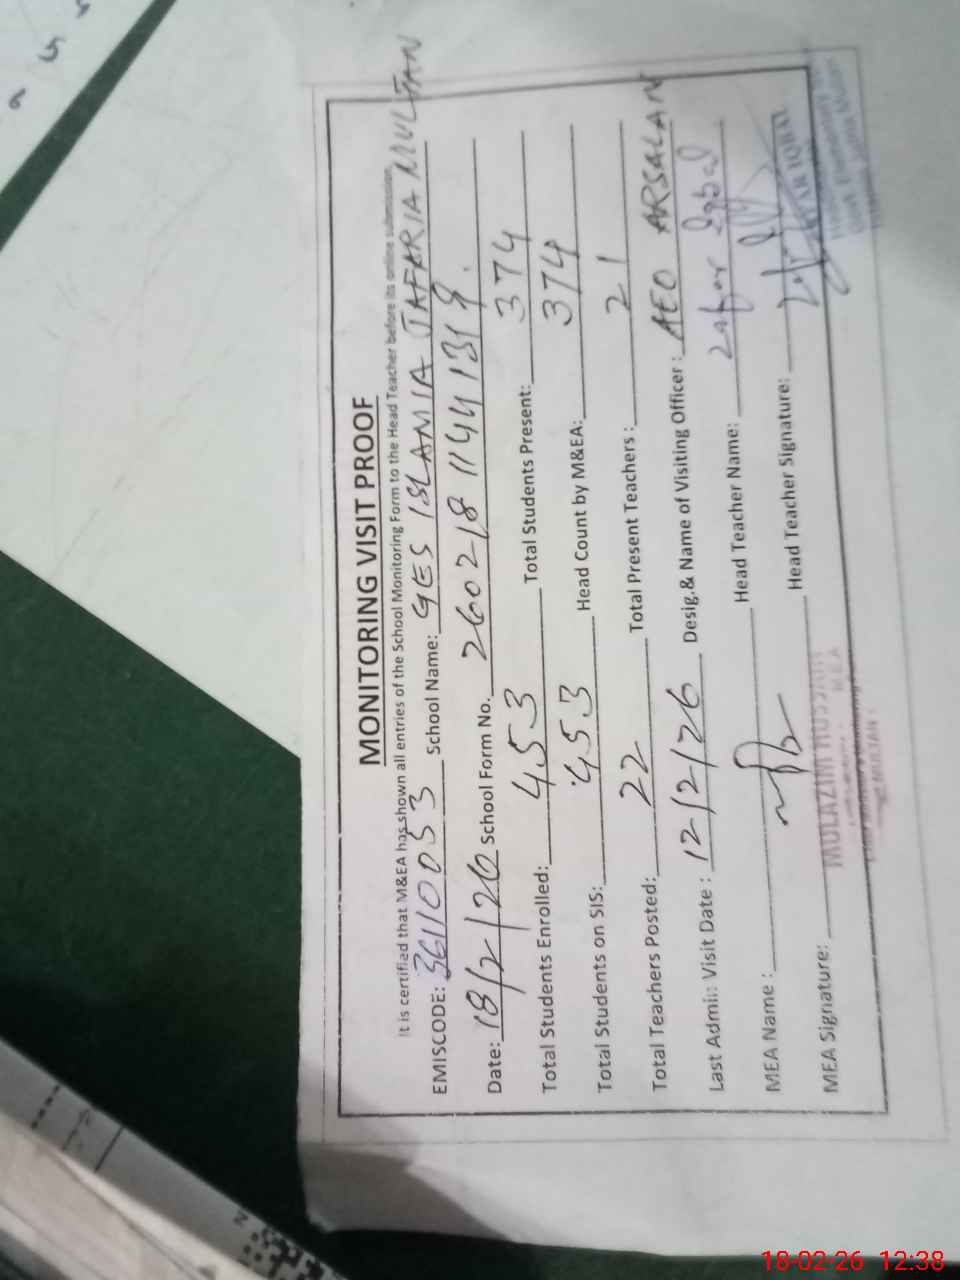 MONITORING VISIT PROOF
It is certified that M&EA has shown all entries of the School Monitoring Form to the Head Teacher before its online submission
EMISCODE: 36110053 School Name: GES ISLAMIA JAFARIA MULTAN
Date: 18/2/26 School Form No. 26021811441319.
Total Students Enrolled: 453 Total Students Present: 374
Total Students on SIS: 453 Head Count by M&EA: 374
Total Teachers Posted: 22 Total Present Teachers : 21
Last Admin: Visit Date : 12/2/26 Desig.& Name of Visiting Officer : AEO ARSALAN
MEA Name : Head Teacher Name: Zafar Iqbal
MEA Signature: Head Teacher Signature:
MULAZIM HUSSAIN
MEA
MULTAN
ZAFAR IQBAL
18-02-26 12:38